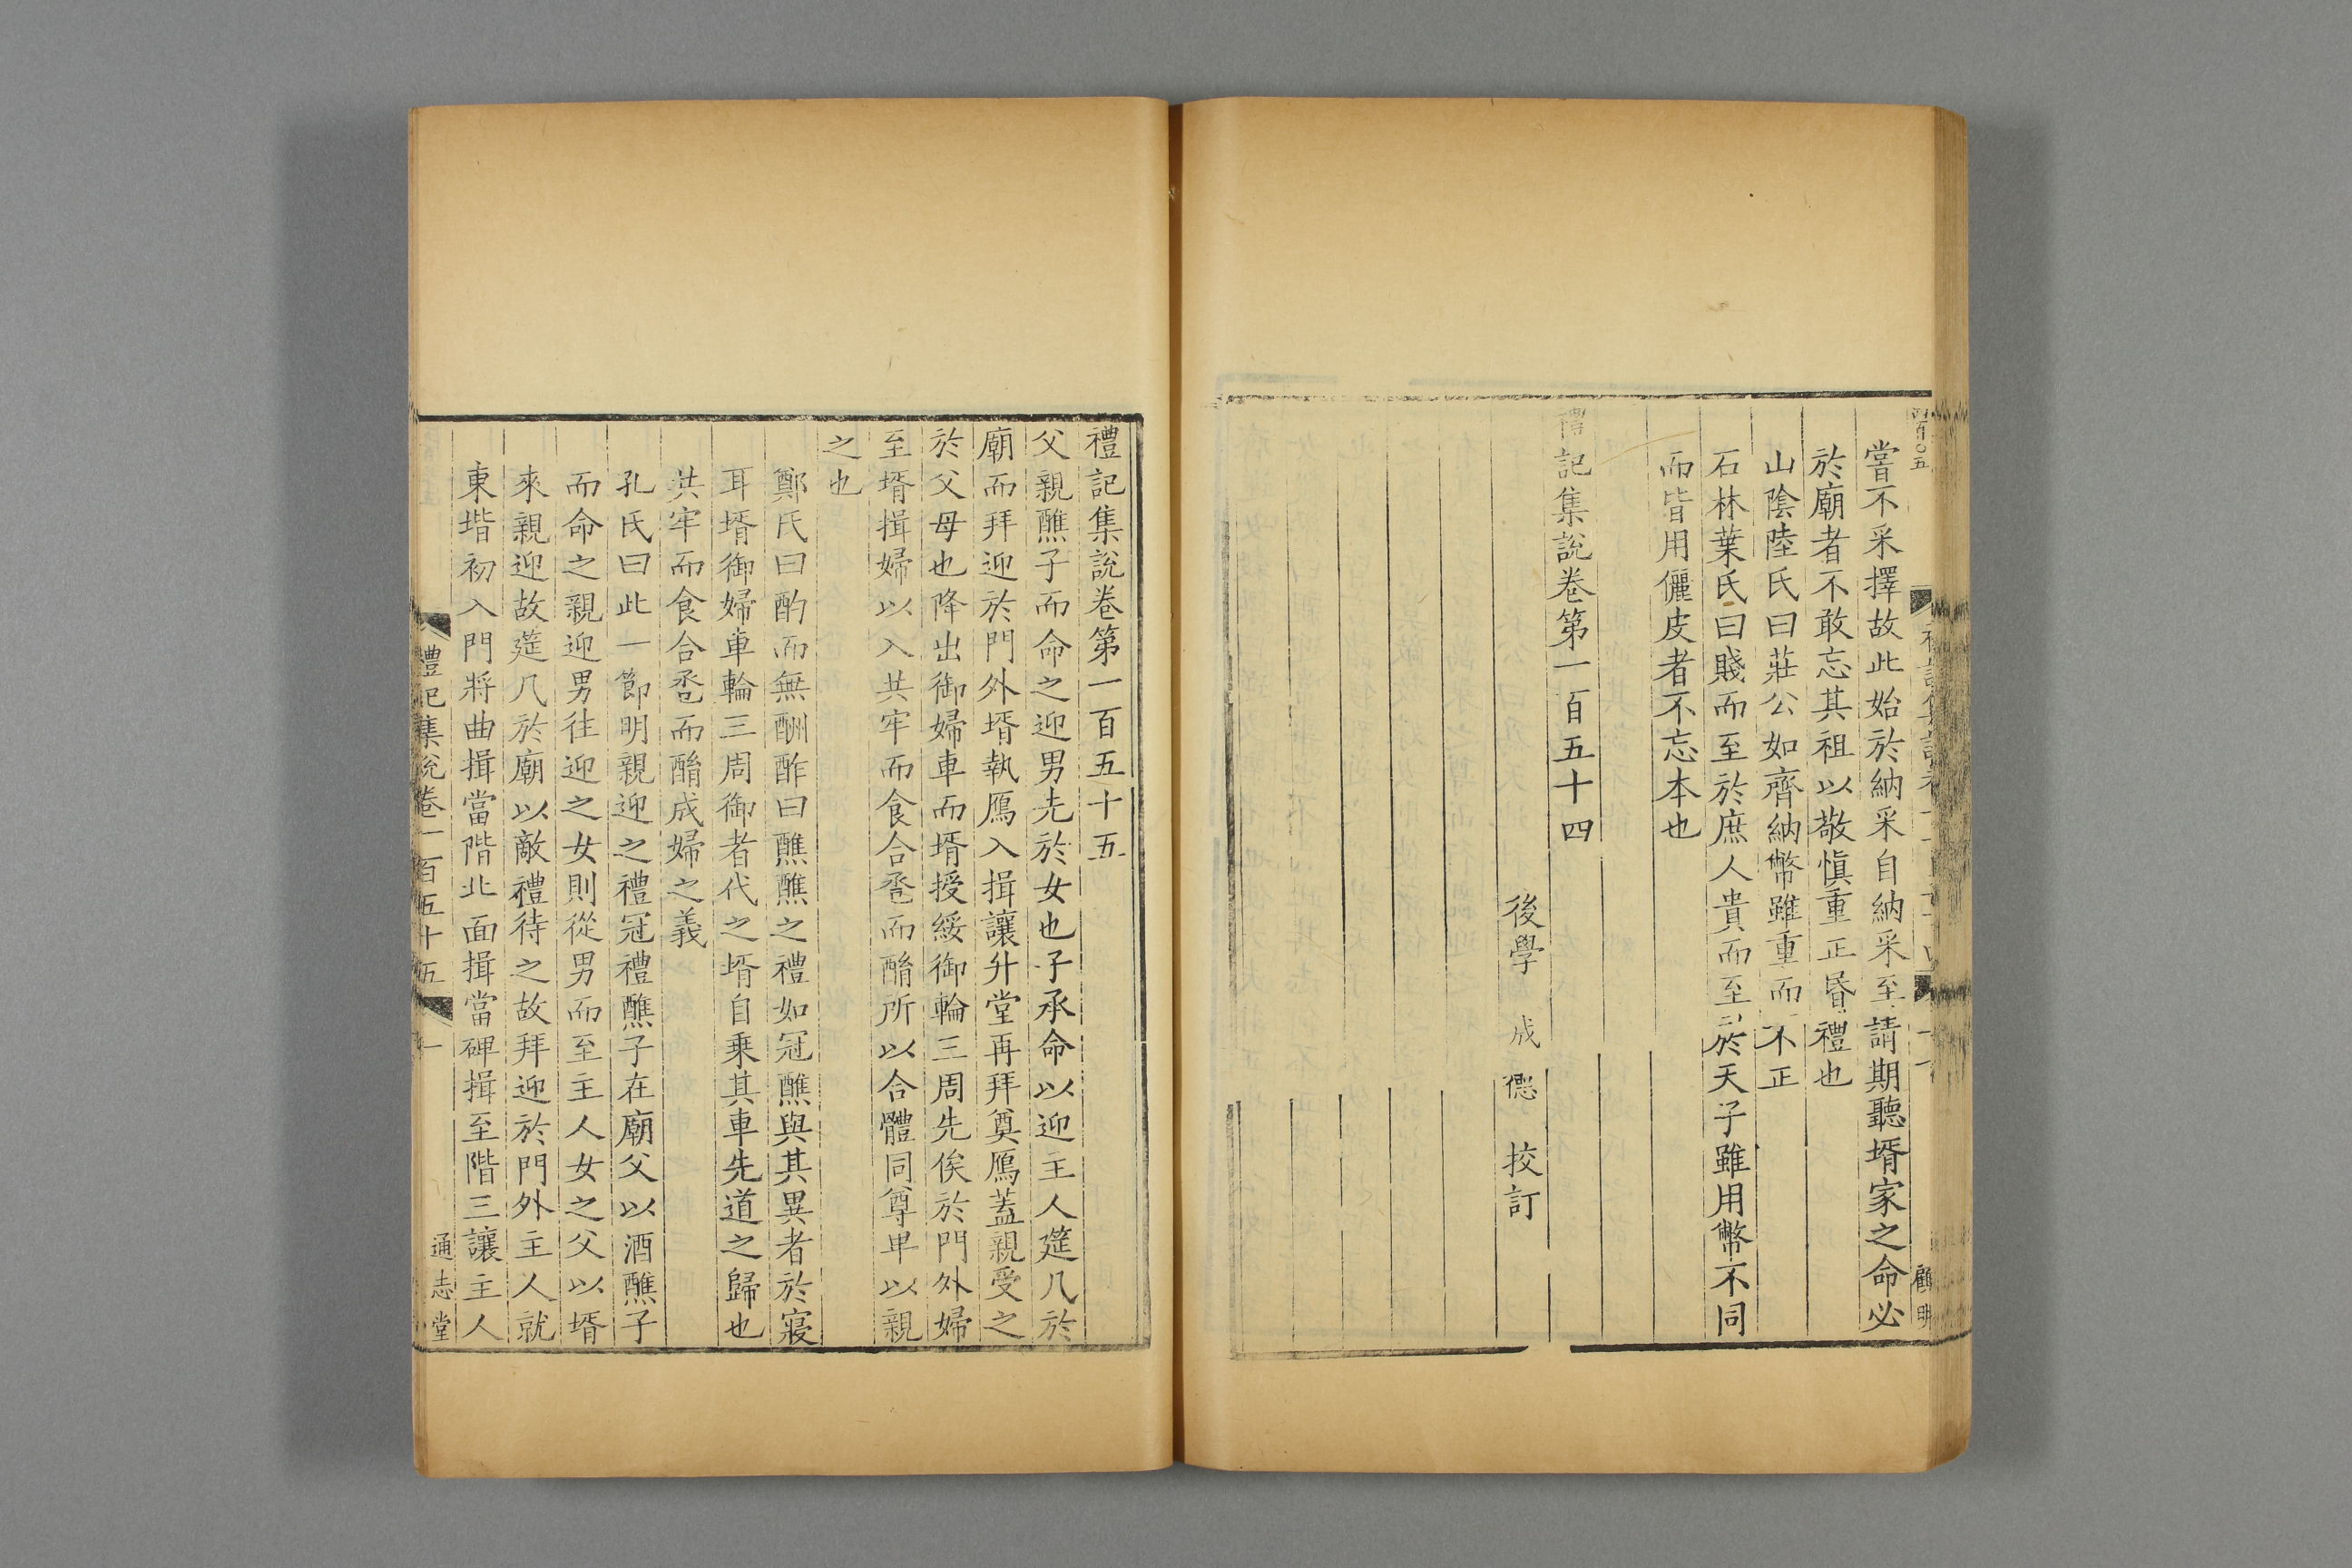 嘗不采擇故此始於納采自納采至請期聽壻家之命必
於廟者不敢忘其祖以敬愼重正昬禮也
山陰陸氏曰莊公如齊納幣雖重而不正
石林葉氏曰賤而至於庶人貴而至於天子雖用幣不同
而皆用儷皮者不忘本也
禮記集說卷第一百五十四
後學 成德 挍訂
顧明
禮記集說卷第一百五十五
父親醮子而命之迎男先於女也子承命以迎主人筵几於
廟而拜迎於門外壻執鴈入揖讓升堂再拜奠鴈蓋親受之
於父母也降出御婦車而壻授綏御輪三周先俟於門外婦
至壻揖婦以入共牢而食合巹而酳所以合體同尊卑以親
之也
鄭氏曰酌而無酬酢曰醮醮之禮如冠醮與其異者於寢
耳壻御婦車輪三周御者代之壻自乗其車先道之歸也
共牢而食合巹而酳成婦之義
孔氏曰此一節明親迎之禮冠禮醮子在廟父以酒醮子
而命之親迎男往迎之女則從男而至主人女之父以壻
來親迎故筵几於廟以敵禮待之故拜迎於門外主人就
東堦初入門將曲揖當階北面揖當碑揖至階三讓主人
禮記集說卷一百五十五
一
通志堂